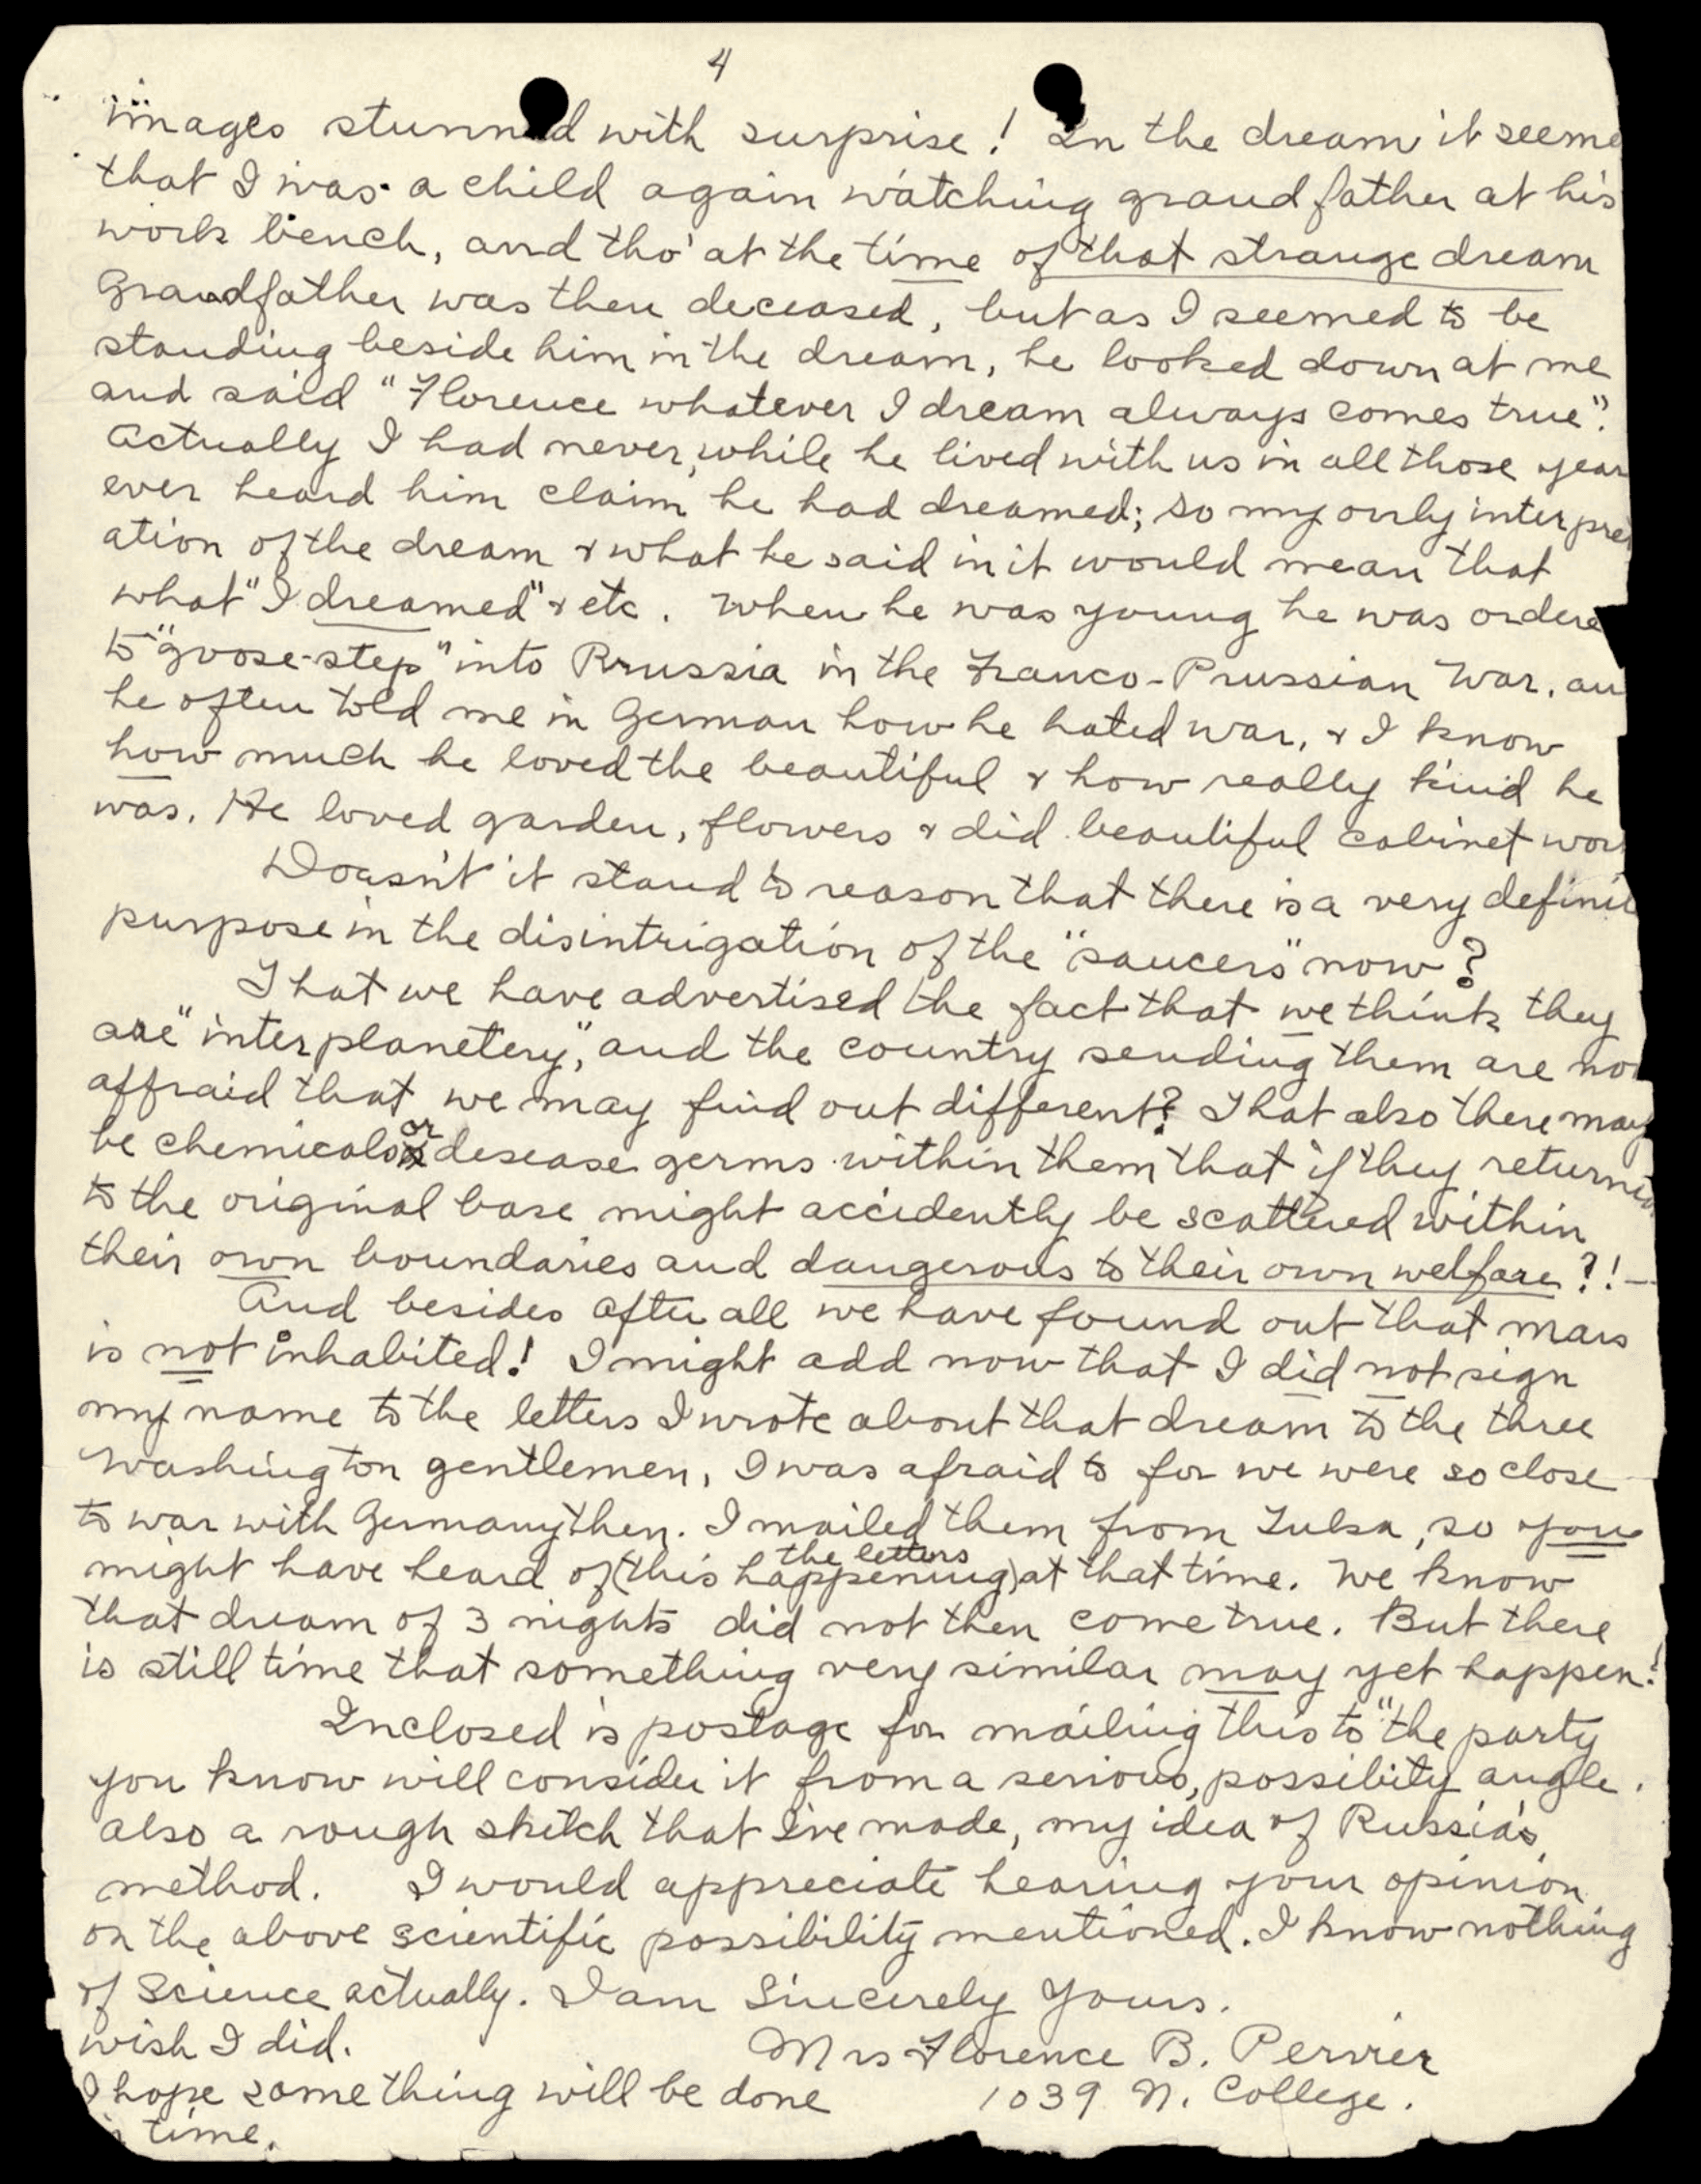 4
images stunned with surprise! In the dream it seeme
that I was a child again watching grandfather at his
work bench, and tho' at the time of that strange dream
Grandfather was then deceased, but as I seemed to be
standing beside him in the dream, he looked down at me
and said "Florence whatever I dream always comes true".
Actually I had never, while he lived with us in all those year
ever heard him claim he had dreamed; so my only interpre
ation of the dream & what he said in it would mean that
what "I dreamed" & etc. When he was young he was ordere
to "goose-step" into Prussia in the Franco-Prussian War, an
he often told me in German how he hated war, & I know
how much he loved the beautiful & how really kind he
was. He loved garden, flowers & did beautiful cabinet wor
Doasn't it stand to reason that there is a very defini
purpose in the disintrigation of the "saucers" now?
That we have advertised the fact that we think they
are "interplanetery", and the country sending them are no
affraid that we may find out different? That also there may
be chemicals or desease germs within them that if they return
to the original base might accidently be scattered within
their own boundaries and dangerous to their own welfare?! —
And besides after all we have found out that mars
is not inhabited! I might add now that I did not sign
my name to the letters I wrote about that dream to the three
Washington gentlemen, I was afraid to for we were so close
to war with Germany then. I mailed them from Tulsa, so you
might have heard of (this happening) the letters at that time. We know
that dream of 3 nights did not then come true. But there
is still time that something very similar may yet happen!
Inclosed is postage for mailing this to "the party
you know will consider it from a serious, possibity angle.
also a rough sketch that I've made, my idea of Russia's
method. I would appreciate hearing your opinion
on the above scientific possibility mentioned. I know nothing
of Science actually. I am Sincerely Yours.
wish I did.
Mrs Florence B. Perrier
I hope something will be done
1039 N. College.
time.